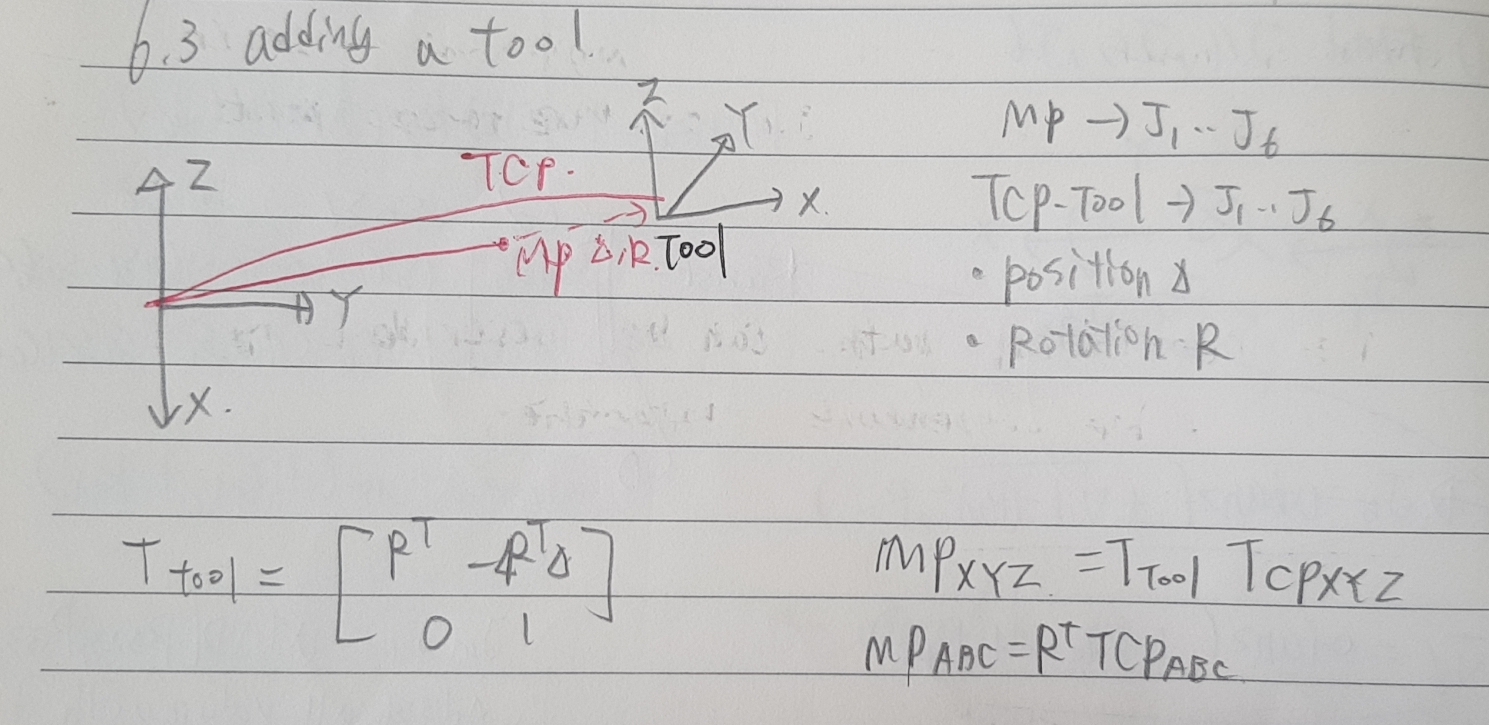 6.3 adding a tool.
Z
Y
X.
TCP.
MP Δ,R. Tool
Z
Y
X.
MP → J₁ ·· J₆
TCP-Tool → J₁ ·· J₆
• position Δ
• Rotation R
T tool = [ Rᵀ -RᵀΔ
0 1 ]
MP XYZ = T Tool TCP XYZ
MP ABC = Rᵀ TCP ABC